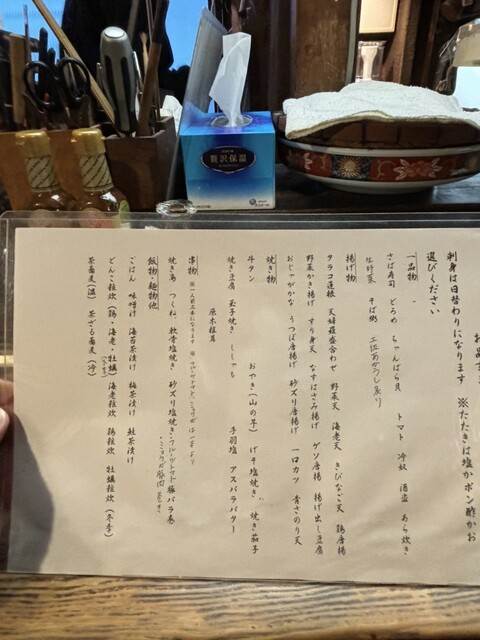 刺身は日替わりになります ※たたきは塩かポン酢かお
選びください
一品物
さば寿司 どろめ ちゃんばら貝 トマト 冷奴 酒盗 あら炊き
生野菜 そば粥
揚げ物
タラコ蓮根 天婦羅盛合わせ 野菜天 海老天 きびなご天 鶏唐揚
野菜かき揚げ すり身天 なすはさみ揚げ ゲソ唐揚 揚げ出し豆腐
おじゃがかな うつぼ唐揚げ 砂ズリ唐揚げ 一口カツ 青さのり天
焼き物
牛タン おやき(山の芋) げそ塩焼き 焼き茄子
焼き豆腐 玉子焼き ししゃも 手羽塩 アスパラバター
原木椎茸
串物 ※一人前三本になります ※フルーツトマト、ミョウガは一本より
焼き鳥 つくね、軟骨塩焼き 砂ズリ塩焼き・フルーツトマト豚バラ巻
・ミョウガ豚肉巻き
飯物・麺物他
ごはん 味噌汁 海苔茶漬け 梅茶漬け 鮭茶漬け
どんこ雑炊(鶏・海老・牡蠣) 海老雑炊 鶏雑炊 牡蠣雑炊(冬季)
茶蕎麦(温) 茶ざる蕎麦(冷)
贅沢保湿